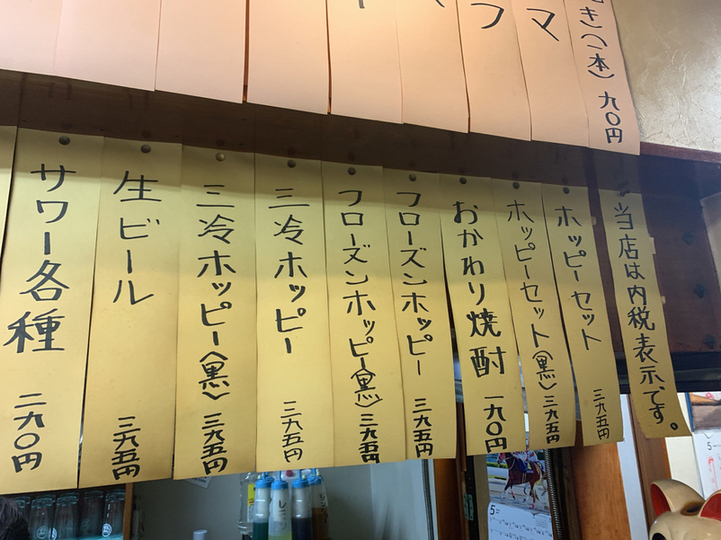 き）（一本） 九〇円
マ
フ
当店は内税表示です。
ホッピーセット 三九五円
ホッピーセット（黒） 三九五円
おかわり焼酎 一九〇円
フローズンホッピー 三九五円
フローズンホッピー（黒） 三九五円
三冷ホッピー 三九五円
三冷ホッピー（黒） 三九五円
生ビール 三九五円
サワー各種 二九〇円
5
5